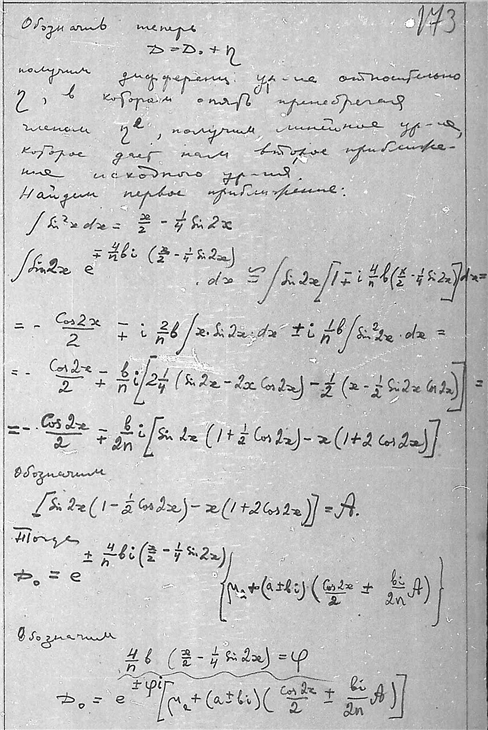 173
Обозначив теперь
D = D₀ + η
получим дифференц. ур-ие относительно
η, в котором опять пренебрегая
членом η², получим линейное ур-ие,
которое дает нам второе приближе-
ние исходного ур-ия.
Найдем первое приближение:
∫ sin²x dx = x/2 - 1/4 sin 2x
∫ sin 2x e^{∓ 4/n bi (x/2 - 1/4 sin 2x)} · dx ≌ ∫ sin 2x [1 ∓ i 4/n b (x/2 - 1/4 sin 2x)] dx =
= - Cos 2x / 2 ∓ i 2/n b ∫ x · sin 2x · dx ± i 1/n b ∫ sin² 2x · dx =
= - Cos 2x / 2 ∓ b/n i [2 1/4 (sin 2x - 2x Cos 2x) - 1/2 (x - 1/2 sin 2x Cos 2x)] =
= - Cos 2x / 2 ∓ b/2n i [sin 2x (1 + 1/2 Cos 2x) - x (1 + 2 Cos 2x)]
Обозначим
[sin 2x (1 - 1/2 Cos 2x) - x (1 + 2 Cos 2x)] = A.
Тогда
D₀ = e^{± 4/n bi (x/2 - 1/4 sin 2x)} {μ₂ + (a ± bi) (cos 2x / 2 ± bi/2n A)}
Обозначим
4/n b (x/2 - 1/4 sin 2x) = φ
D₀ = e^{± φi} [μ₂ + (a ± bi) (cos 2x / 2 ± bi/2n A)]